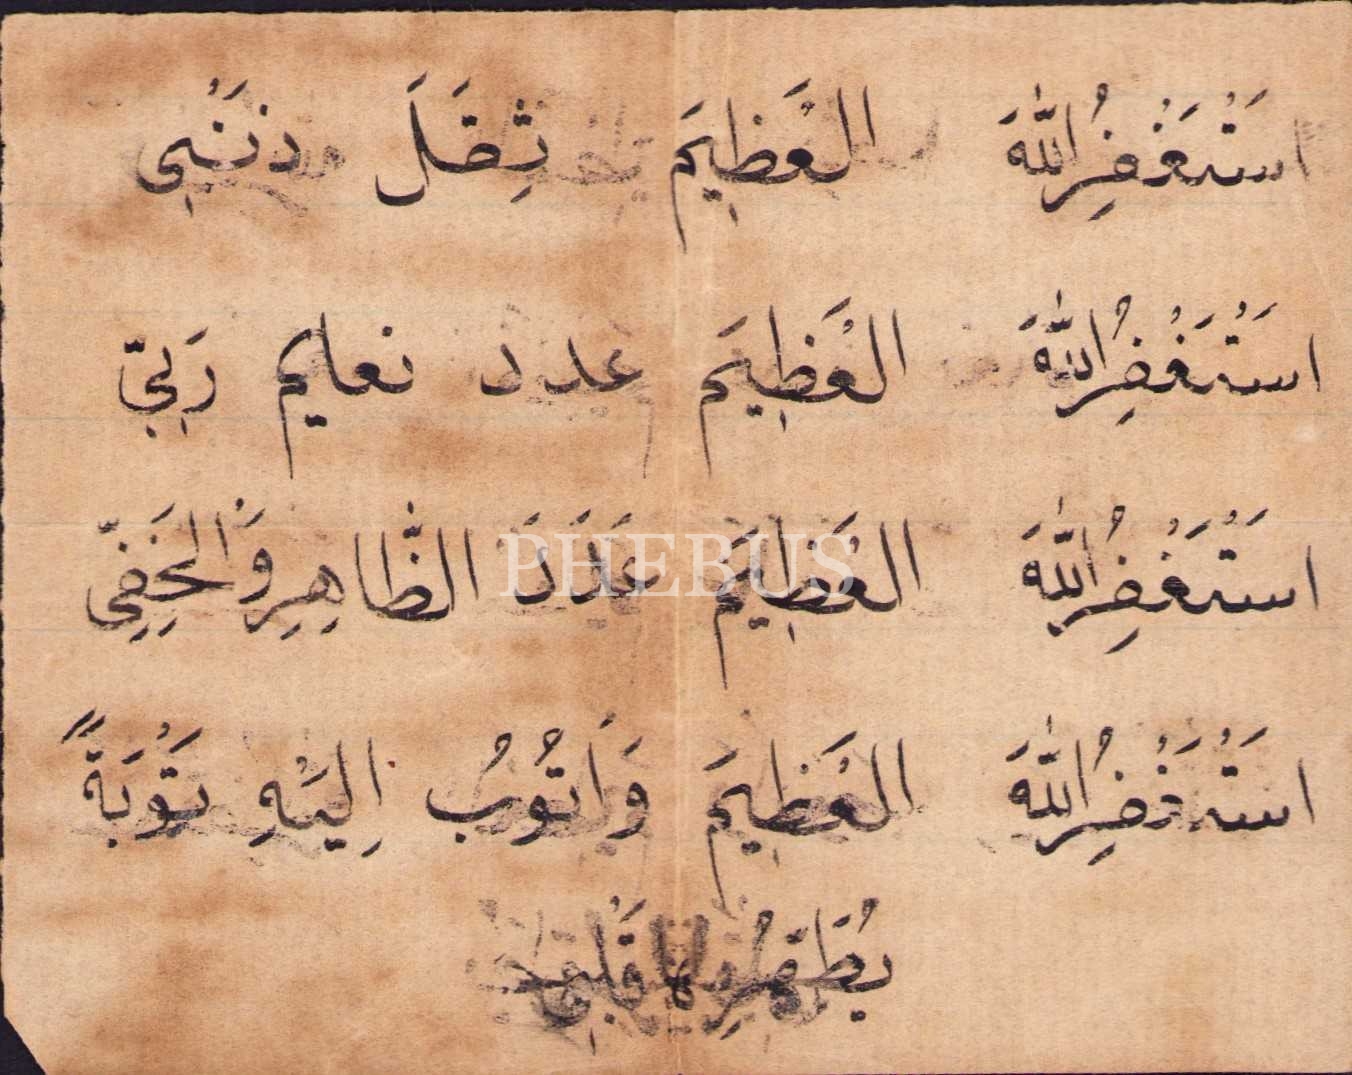 اَسْتَغْفِرُ اللّٰهَ الْعَظِيمَ ثِقَلَ ذَنْبِي
اَسْتَغْفِرُ اللّٰهَ الْعَظِيمَ عدد تعليم رَبِّي
اَسْتَغْفِرُ اللّٰهَ الْعَظِيمَ عَدَدَ الظَّاهِرِ وَالْخَفِيِّ
اَسْتَغْفِرُ اللّٰهَ الْعَظِيمَ وَاَتُوبُ اِلَيْهِ تَوْبَةً
يُطَهِّرُ بها قَلْبِي
PHEBUS